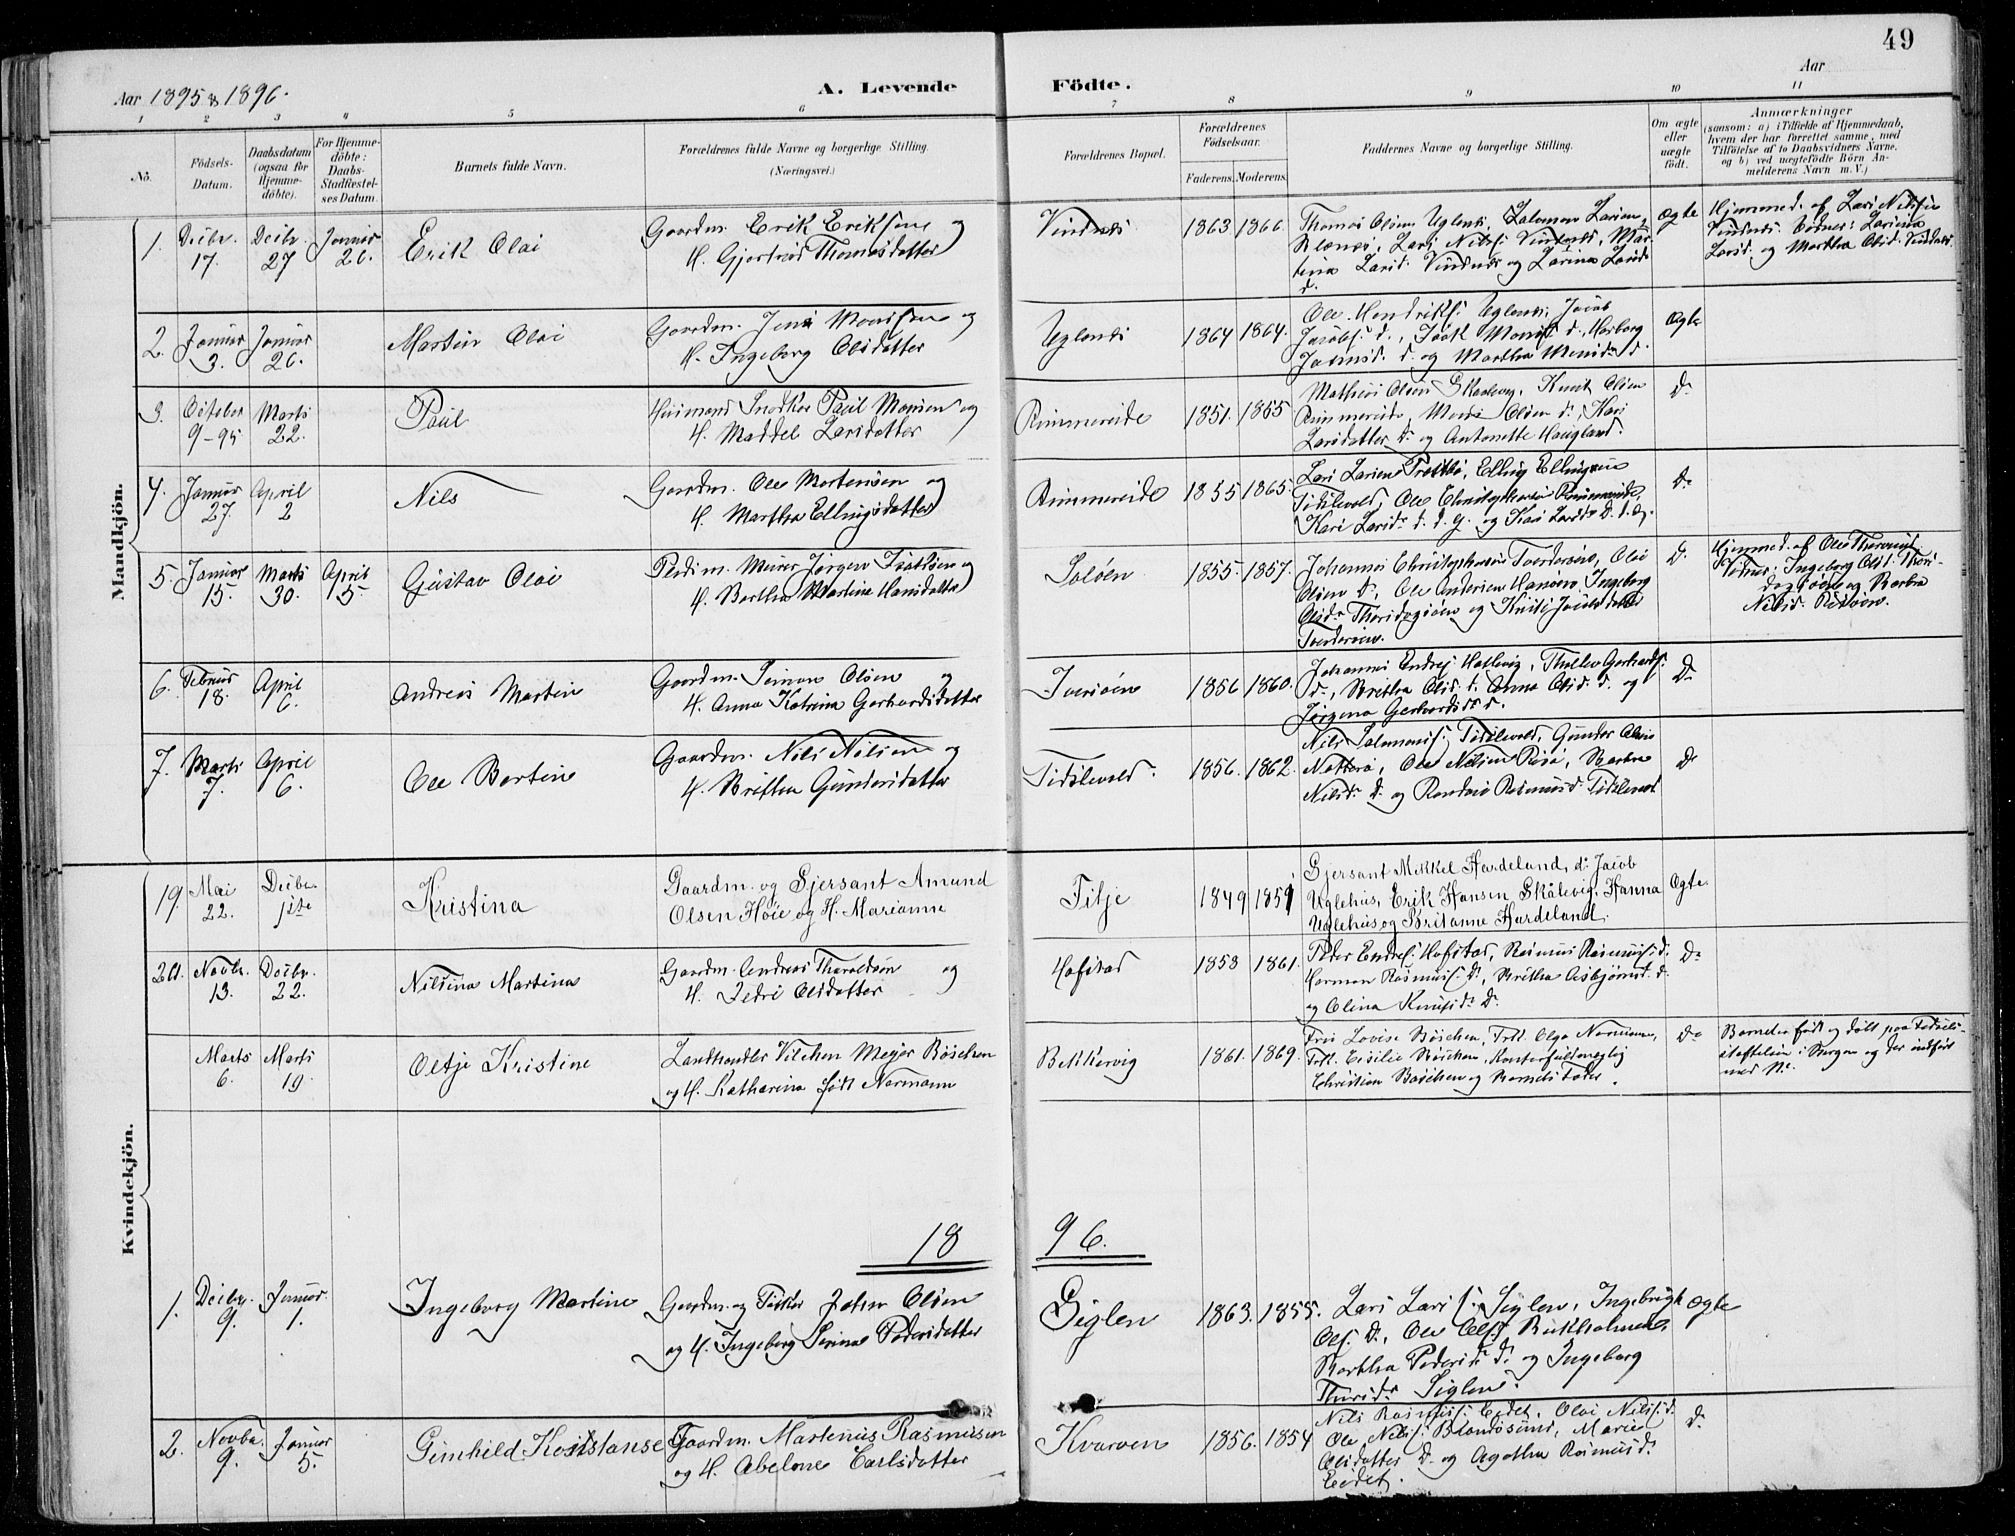 49
Aar 1895 & 1896.
A. Levende Födte.
Aar
1 2 3 4 5 6 7 8 9 10 11
No.
Födsels-Datum.
Daabsdatum (ogsaa for Hjemme-döbte).
For Hjemme-döbte: Daabs-Stadfæstel-ses Datum.
Barnets fulde Navn.
Forældrenes fulde Navne og borgerlige Stilling.
(Næringsvei.)
Forældrenes Bopæl.
Forældrenes Födselsaar.
Faderens. Moderens.
Faddernes Navne og borgerlige Stilling.
Om ægte eller uægte födt.
Anmærkninger
(saasom: a) i Tilfælde af Hjemmedaab,
hvem der har forrettet samme, med
Tilföielse af to Daabsvidners Navne,
og b) ved uægtefödte Börn An-
melderens Navn m. V.)
Mandkjön.
1. Decbr. 17. Decbr. 27 Januar 26. Erik Olai
Gaardm. Erik Eriksen og
H. Gjertrud Thomasdatter
Vindnes 1863 1866
Thomas Olsen Uglenes, Salomon Larsen
Lars Nilss. Vindnes, Mar-
tina Larsd. Vindnes og Larina Larsd.
d.
Ægte
Hjemmed. af Lars Nilsen
Vindnes. Vidner: Larina
Larsd. og Martha Olsd. Vindnes
2. Januar 3. Januar 26. Martin Olai
Gaardm. Jens Monssen og
H. Ingeborg Olsdatter
Uglenes 1864 1864.
Ole Hendriks. Uglenes, Jacob
Jacobs. d., Isak Monss. d., Herborg
d. og Martha Monsdr. d.
Ægte
3. October 9-95 Marts 22. Paul
Husmand Snedker Paul Monsen og
H. Maddel Larsdatter
Rimmereide 1851. 1865
Mathias Olsen Skaalevig, Knut Olsen
Rimmereide, Mons Olsen d., Kari
Larsdatter D. og Antonette Haugland.
Do
4. Januar 27. April 2 Nils
Gaardm. Ole Mortensen og
H. Martha Ellingsdatter
Rimmereide 1855 1865.
Lars Larsen Trætbø, Elling Ellingsen
Tidslevold, Ole Christophersen Rimmereide,
Kari Larsdr. d. d. y. og Kari Larsdr. D. d. æ.
Do
5. Januar 15. Marts 30. April 5 Gustav Olai
Pladsm. Murer Jørgen og
H. Bertha Martine Hansdatter
Soløen 1855 1857.
Johannes Christophersen Tverderøen, Olai
Olsen D., Ole Andersen Hansøen, Ingeborg
Olsdr. og Jacobsdatter
Tverderøen.
D.
Hjemmed. af Ole
Vidner: Ingeborg Olsd.
og Barbra
Nilsd.
6. Februar 18. April 6 Andreas Martin
Gaardm. Simon Olsen og
H. Anna Katrina Gerhardsdatter
Iversøen 1856 1860.
Johannes Endres. Hatlevig, Thollev Gerhards.
d., Britha Olsd. d. Anna Olsd. D. og
Jørgena Gerhardsdr. d.
Do
7. Marts 7. April 6. Ole Bertin
Gaardm. Nils Nilsen og
H. Britha Gundersdatter
Tidslevold. 1856. 1862.
Nils Salomons. Tidslevold, Gunder Olsen
Nattero, Ole Nilsen Risø, Barbra
Nilsdr. D. og Rasmusd. Tidslevold
Do
Kvindekjön.
19. Mai 22. Decbr. 1ste Kristina
Gaardm. og Sjersant Amund
Olsen Høie og H. Marianne
Fitje 1849 1859
Sjersant Mikkel Hardeland, d. Jacob
Uglehus, Erik Hansen Skålevig, Hanna
Uglehus og Britanne Hardeland.
Ægte.
20. Novbr. 13. Decbr. 22. Nilsina Martina
Gaardm. Andreas Tharaldsen og
H. Sedri Olsdatter
Hofstad 1858 1861.
Peder Endres. Hofstad, Rasmus Rasmuss. d.
Herman Rasmuss. D., Britha Asbjørnsd. d.
og Olina Knutsdr. D.
Do
Marts 6. Marts 19. Oltje Kristine
Landhandler Vilchen Meyer Bøschen
og H. Katharina født Normann
Bekkervig 1861. 1869.
Fru Lovise Bøschen, Frk. Olga Normann,
Frk. Cecilie Bøschen,
Christian Bøschen og Barnets Fader.
Do
Barnet er født og døbt paa Fødsels-
stiftelsen i Bergen og der indført
med No.
1896.
1. Decbr. 9. Januar. 1. Ingeborg Martine
Gaardm. og Fisker Johan Olsen
og H. Ingeborg Serina Pedersdatter
Siglen 1863. 1855.
Lars Lars S. Siglen, Ingebrigt
Ols. D., Ole Ols. Birkholmen,
Bertha Pedersdr. D. og Ingeborg
Siglen.
Ægte
2. Novbr. 9. Januar 5. Gunhild Konstanse
Gaardm. Martenus Rasmusen
og H. Abelone Carlsdatter
Kvarven 1856. 1854
Nils Rasmuss. Eidet, Olai Nilss. d.
Ole Nilss. Brandøsund, Marie
Olsdatter D. og Agatha Rasmusd.
Eidet.
D.